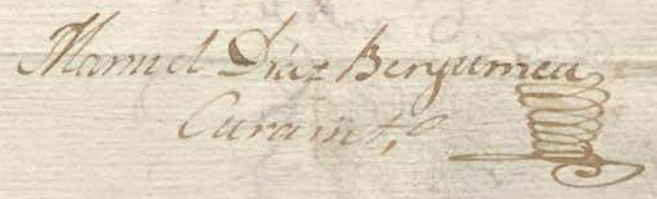 Manuel Diaz Benjumea
Cura int.º